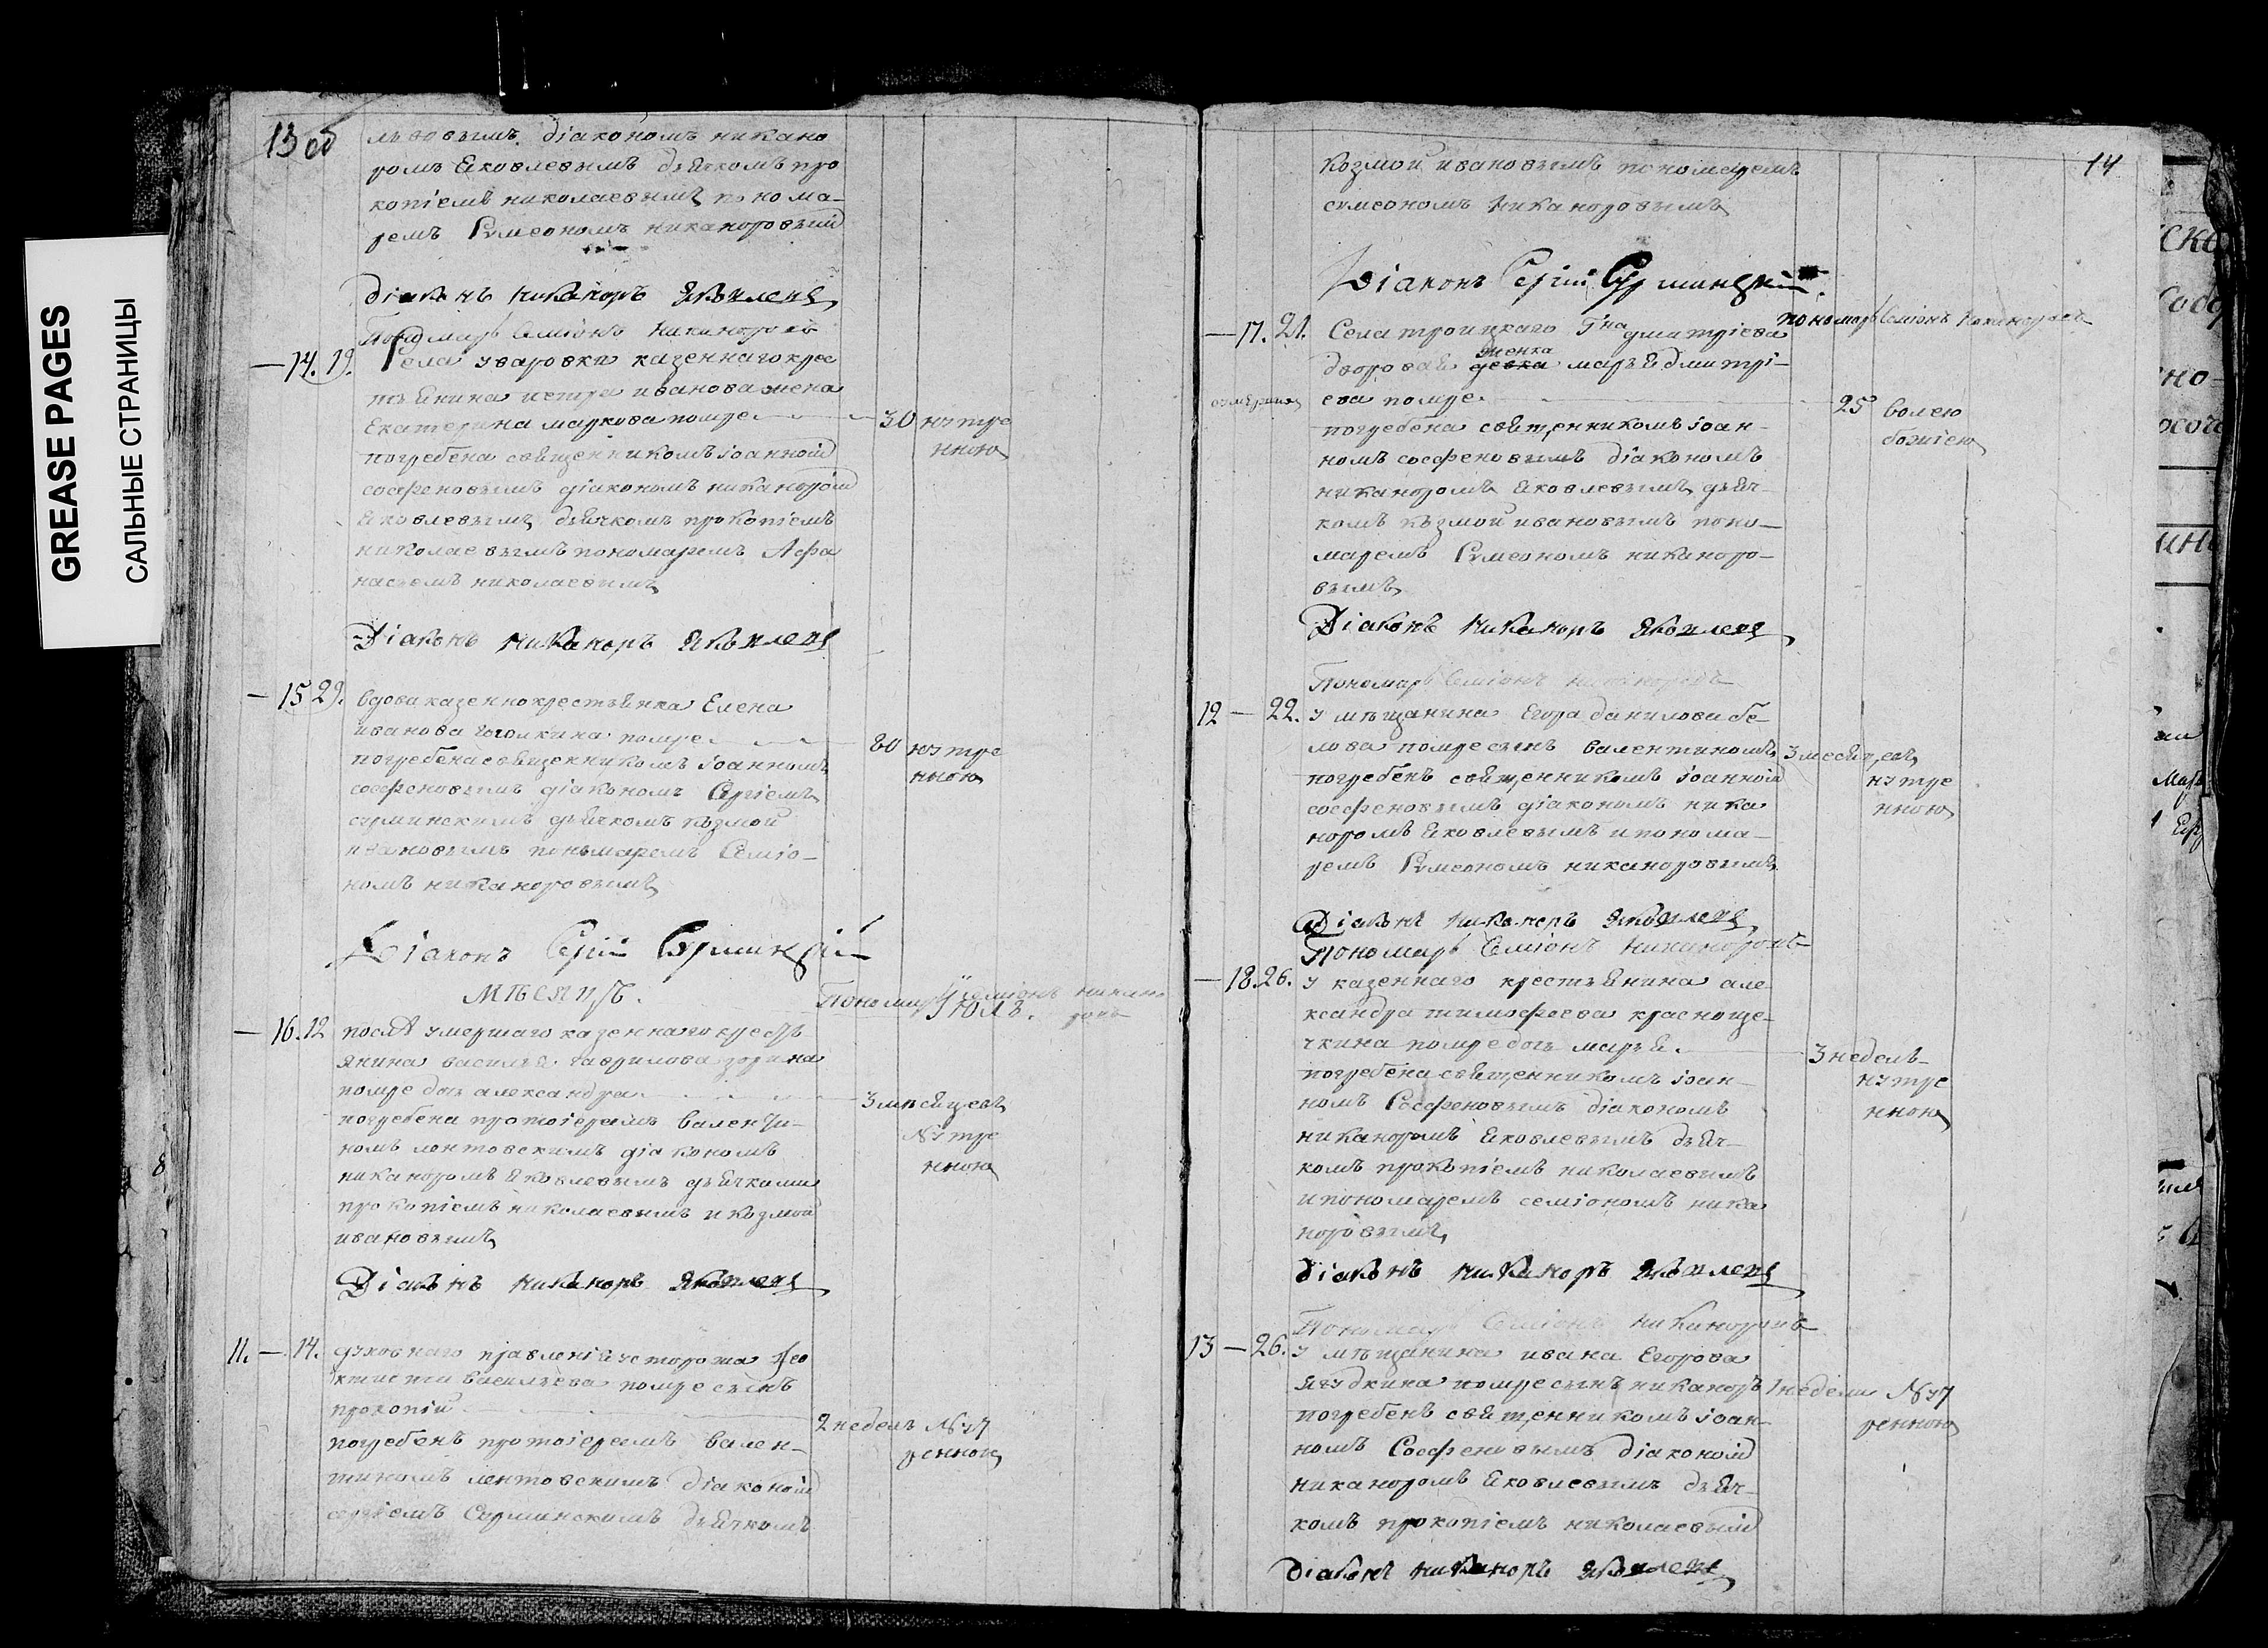 GREASE PAGES
САЛЬНЫЕ СТРАНИЦЫ
13 об
діакономъ никано
ромъ Яковлевымъ дьячкомъ про
копіемъ николаевымъ понома-
ремъ Сумеономъ никаноровым
Діаконъ Никаноръ Яковлевъ
Пономарь Семіонъ Никаноровъ
14. 19. Села уваровки казеннаго крес
тьянина петра иванова жена
Екатерина маркова помре 30 нутре
нною
погребена священникомъ іоанном
сосфеновымъ діакономъ никанором
Яковлевымъ дьячкомъ прокопіемъ
николаевымъ пономаремъ Афа
насьемъ николаевымъ
Діаконъ Никаноръ Яковлевъ
15 29. вдова казеннокрестьянка Елена
иванова помре 80 нутре
нною
погребена священникомъ іоанномъ
сосфеновымъ діакономъ Сергіемъ
дьячкомъ козмой
ивановымъ пономаремъ Семіо-
номъ никаноровымъ
Діаконъ Сергій
мѣсяцъ. Іюль.
Пономарь Семіонъ никано
ровъ
16. 12 послѣ умершаго казеннаго кресть
янина василья гаврилова зорина
помре дочь александра 3 мѣсяцевъ
нутре
нною
погребена протоіереемъ вален ти-
номъ лентовскимъ діакономъ
никаноромъ Яковлевымъ дьячками
прокопіемъ николаевымъ и козмой
ивановымъ
Діаконъ Никаноръ Яковлевъ
11. 14. духовнаго правленія сторожа Фео
ктиста васильева помре сынъ
прокопій 2 недель нут
ренною
погребенъ протоіереемъ вален-
тиномъ лентовскимъ діаконом
сергіемъ дьячкомъ
14
козмой ивановымъ пономаремъ
симеономъ Никаноровымъ
Діаконъ Сергій
пономарь Семіонъ Никаноровъ
17. 21. Села троицкаго Гна дмитріева
женка
дворовая девка марья дмитрі-
ева помре 25 волею
божіею
погребена священникомъ іоан-
номъ сосфеновымъ діакономъ
никаноромъ Яковлевымъ дьяч-
комъ козмой ивановымъ поно-
маремъ Сумеономъ никаноро-
вымъ
Діаконъ Никаноръ Яковлевъ
Пономарь Семіонъ никаноровъ
12 22. у мѣщанина Егора данилова бе-
лова помре сынъ валентиномъ 3 месяцевъ
нутре
нною
погребенъ священникомъ іоанном
сосфеновымъ діакономъ ника
норомъ Яковлевымъ и понома-
ремъ Сумеономъ никаноровымъ
Діаконъ Никаноръ Яковлевъ
Пономарь Семіонъ Никаноровъ
18. 26. у казеннаго крестьянина але
ксандра тимофеева краснощe-
чкина помре дочь марья 3 недель
нутре
нною
погребена священникомъ іоан-
номъ Сосфеновымъ діакономъ
никаноромъ Яковлевымъ дьяч-
комъ прокопіемъ николаевымъ
и пономаремъ семіономъ ника
норовымъ
Діаконъ Никаноръ Яковлевъ
Пономарь Семіонъ Никаноровъ
13 26. у мѣщанина ивана Егорова
ягудкина помре сынъ никаноръ 1 недели нут
ренною
погребенъ священникомъ іоан-
номъ Сосфеновымъ діаконом
никаноромъ Яковлевымъ дьяч-
комъ прокопіемъ николаевым
Діаконъ Никаноръ Яковлевъ